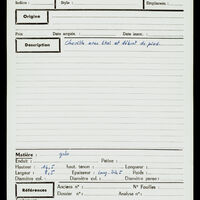 Indice : Style : Emplacem. :
Origine
Prix Date acquis. : Date inscr. :
Description Cheville avec tibia et début de pied.
Matière : grès
Enduit : Patine :
Hauteur : 14,5 haut. tenon : Longueur :
Largeur : 8,5 Epaisseur : Poids :
Diamètre col : Diamètre : Diamètre panse :
Références Anciens n° : N° Fouilles :
Dossier n° : Analyse n° :